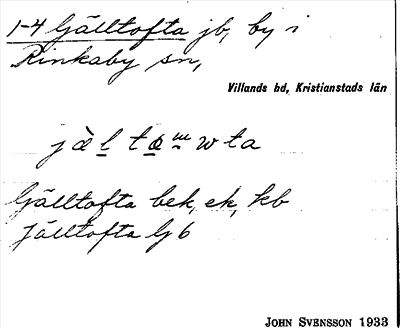 1-4 Gälltofta jb, by i
Rinkaby sn,
Villands hd, Kristianstads län
Gälltofta bek, ek, kb
Jälltofta Gj 6
JOHN SVENSSON 1933